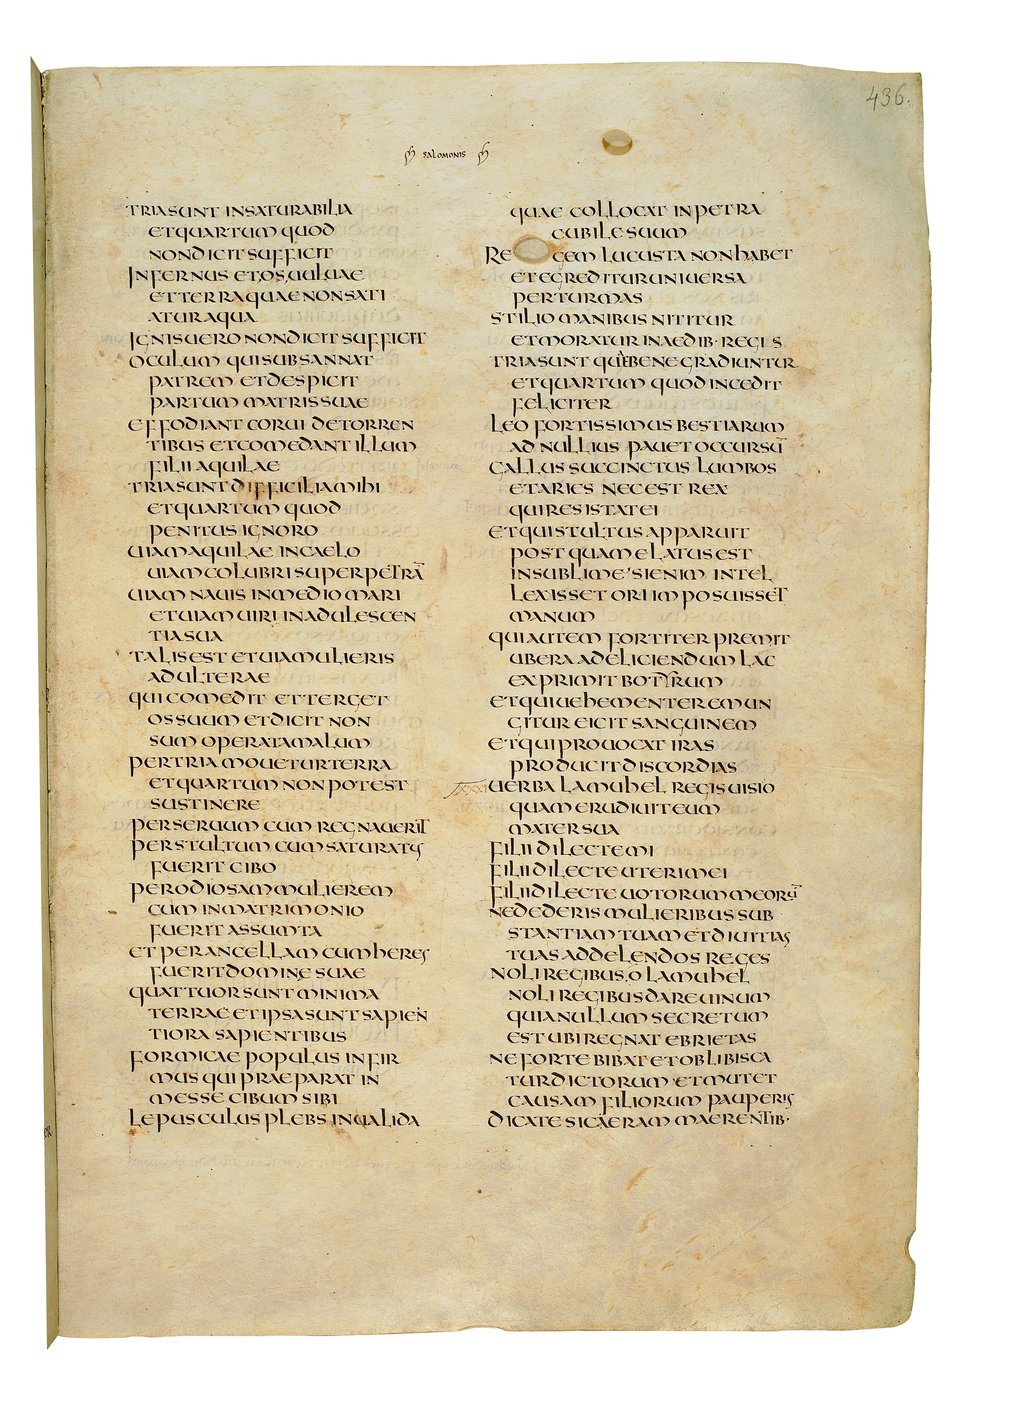 436.
SALOMONIS
TRIA SUNT INSATURABILIA
ET QUARTUM QUOD
NON DICIT SUFFICIT
INFERNUS ET OS UULUAE
ET TERRA QUAE NON SATI
ATUR AQUA
IGNIS UERO NON DICIT SUFFICIT
OCULUM QUI SUBSANNAT
PATREM ET DESPICIT
PARTUM MATRIS SUAE
EFFODIANT CORUI DE TORREN
TIBUS ET COMEDANT ILLUM
FILII AQUILAE
TRIA SUNT DIFFICILIA MIHI
ET QUARTUM QUOD
PENITUS IGNORO
UIAM AQUILAE IN CAELO
UIAM COLUBRI SUPER PETRĀ
UIAM NAUIS IN MEDIO MARI
ET UIAM UIRI IN ADULESCEN
TIA SUA
TALIS EST ET UIA MULIERIS
ADULTERAE
QUI COMEDIT ET TERGET
OS SUUM ET DICIT NON
SUM OPERATA MALUM
PER TRIA MOUETUR TERRA
ET QUARTUM NON POTEST
SUSTINERE
PER SERUUM CUM REGNAUERIT
PER STULTUM CUM SATURATUS
FUERIT CIBO
PER ODIOSAM MULIEREM
CUM IN MATRIMONIO
FUERIT ASSUMTA
ET PER ANCELLAM CUM HERES
FUERIT DOMINE SUAE
QUATTUOR SUNT MINIMA
TERRAE ET IPSA SUNT SAPIEN
TIORA SAPIENTIBUS
FORMICAE POPULUS INFIR
MUS QUI PRAEPARAT IN
MESSE CIBUM SIBI
LEPUSCULUS PLEBS INUALIDA
QUAE COLLOCAT IN PETRA
CUBILE SUUM
REGEM LUCUSTA NON HABET
ET EGREDITUR UNIUERSA
PER TURMAS
STILIO MANIBUS NITITUR
ET MORATUR IN AEDIB· REGIS
TRIA SUNT QUE BENE GRADIUNTUR
ET QUARTUM QUOD INCEDIT
FELICITER
LEO FORTISSIMUS BESTIARUM
AD NULLIUS PAUET OCCURSŪ
GALLUS SUCCINCTUS LUMBOS
ET ARIES NEC EST REX
QUI RESISTAT EI
ET QUI STULTUS APPARUIT
POSTQUAM ELATUS EST
IN SUBLIME SI ENIM INTEL
LEXISSET ORI IMPOSUISSET
MANUM
QUI AUTEM FORTITER PREMIT
UBERA AD ELICIENDUM LAC
EXPRIMIT BOTYRUM
ET QUI UEHEMENTER EMUN
GITUR EICIT SANGUINEM
ET QUI PROUOCAT IRAS
PRODUCIT DISCORDIAS
UERBA LAMUHEL REGIS UISIO
QUAM ERUDIUIT EUM
MATER SUA
FILII DILECTE MI
FILII DILECTE UTERI MEI
FILII DILECTE UOTORUM MEORŪ
NE DEDERIS MULIERIBUS SUB
STANTIAM TUAM ET DIUITIAS
TUAS AD DELENDOS REGES
NOLI REGIBUS O LAMUHEL
NOLI REGIBUS DARE UINUM
QUIA NULLUM SECRETUM
EST UBI REGNAT EBRIETAS
NE FORTE BIBAT ET OBLIBISCA
TUR DICTORUM ET MUTET
CAUSAM FILIORUM PAUPERIS
DICATE SICAERAM MAERENTIB·